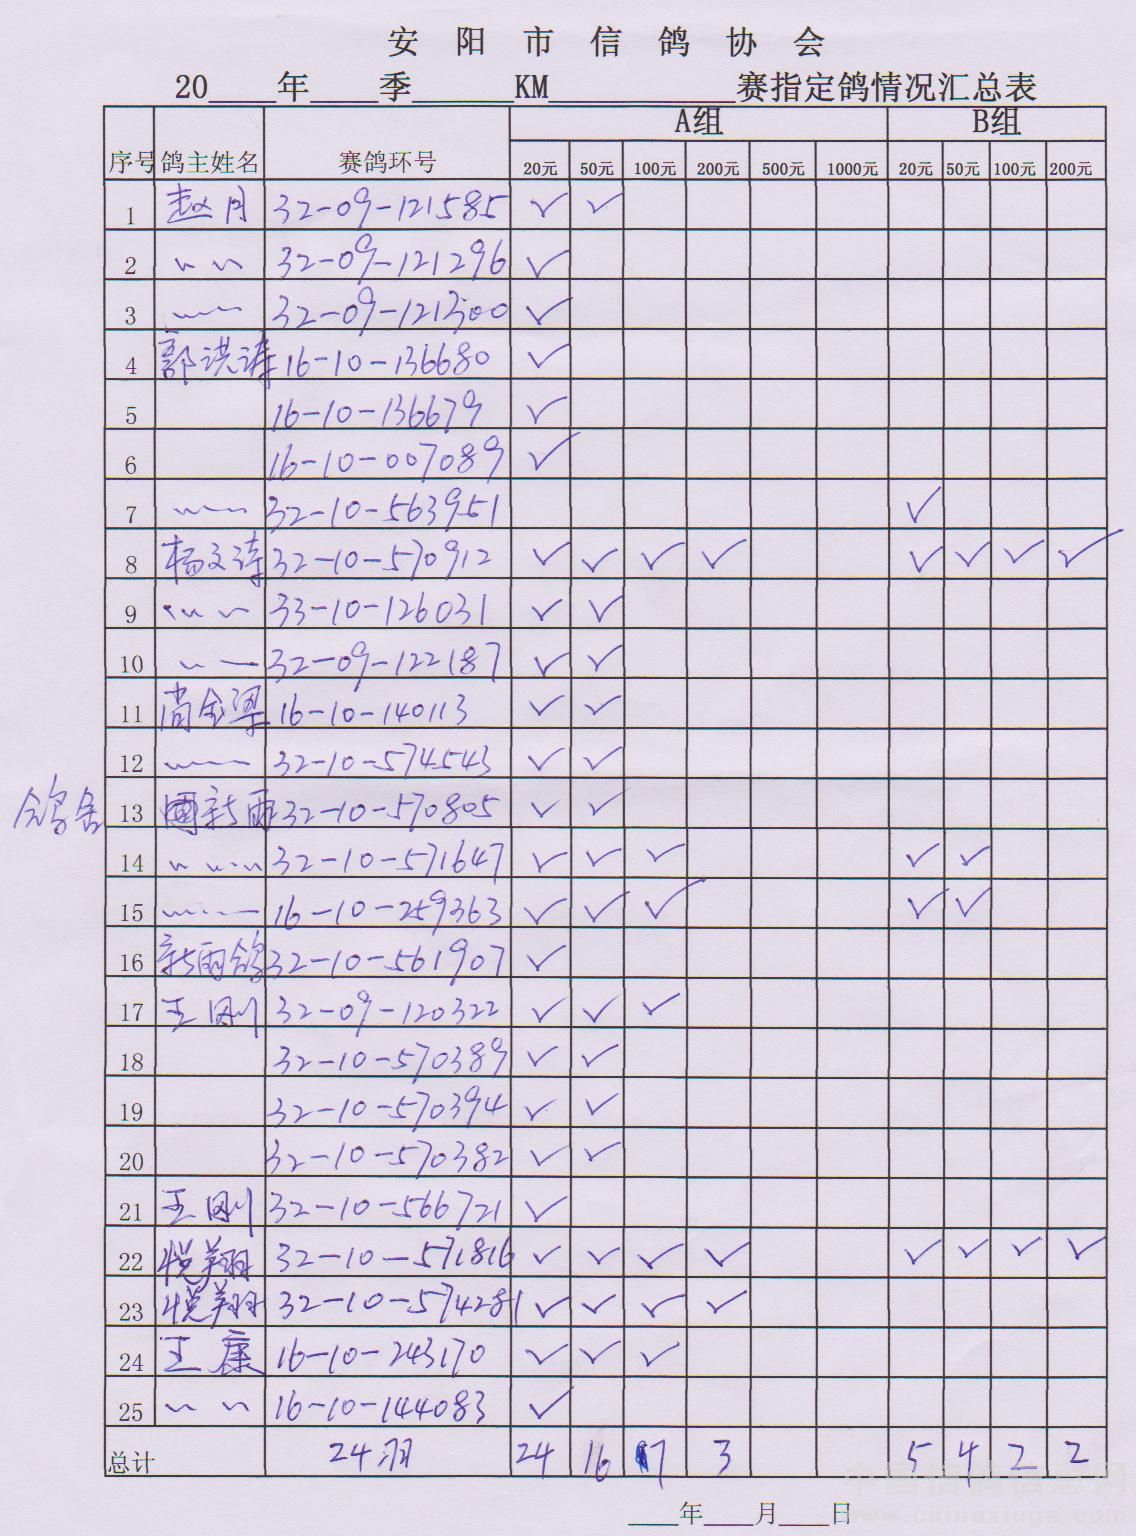 安阳市信鸽协会
20____年____季______KM___________赛指定鸽情况汇总表
序号 鸽主姓名 赛鸽环号 A组 B组
20元 50元 100元 200元 500元 1000元 20元 50元 100元 200元
1 赵月 32-09-121585 ✓ ✓
2 〃 〃 32-09-121296 ✓
3 〃 32-09-121300 ✓
4 郭洪涛 16-10-136680 ✓
5 16-10-136679 ✓
6 16-10-007089 ✓
7 〃 32-10-563951 ✓
8 杨文涛 32-10-570912 ✓ ✓ ✓ ✓ ✓ ✓ ✓ ✓
9 〃 〃 33-10-126031 ✓ ✓
10 〃 32-09-122187 ✓ ✓
11 尚金梁 16-10-140113 ✓ ✓
12 〃 32-10-574543 ✓ ✓
鸽舍
13 周新雨 32-10-570805 ✓ ✓
14 〃 〃 〃 32-10-571647 ✓ ✓ ✓ ✓ ✓
15 〃 16-10-259363 ✓ ✓ ✓ ✓ ✓
16 新雨鸽 32-10-561907 ✓
17 王刚 32-09-120322 ✓ ✓ ✓
18 32-10-570389 ✓ ✓
19 32-10-570394 ✓ ✓
20 32-10-570382 ✓ ✓
21 王刚 32-10-566721 ✓
22 悦翔 32-10-571816 ✓ ✓ ✓ ✓ ✓ ✓ ✓ ✓
23 悦翔 32-10-574281 ✓ ✓ ✓ ✓
24 王康 16-10-243170 ✓ ✓ ✓
25 〃 〃 16-10-144083 ✓
总计 24羽 24 16 7 3 5 4 2 2
____年____月____日
中国信鸽信息网
www.chinaxinge.com